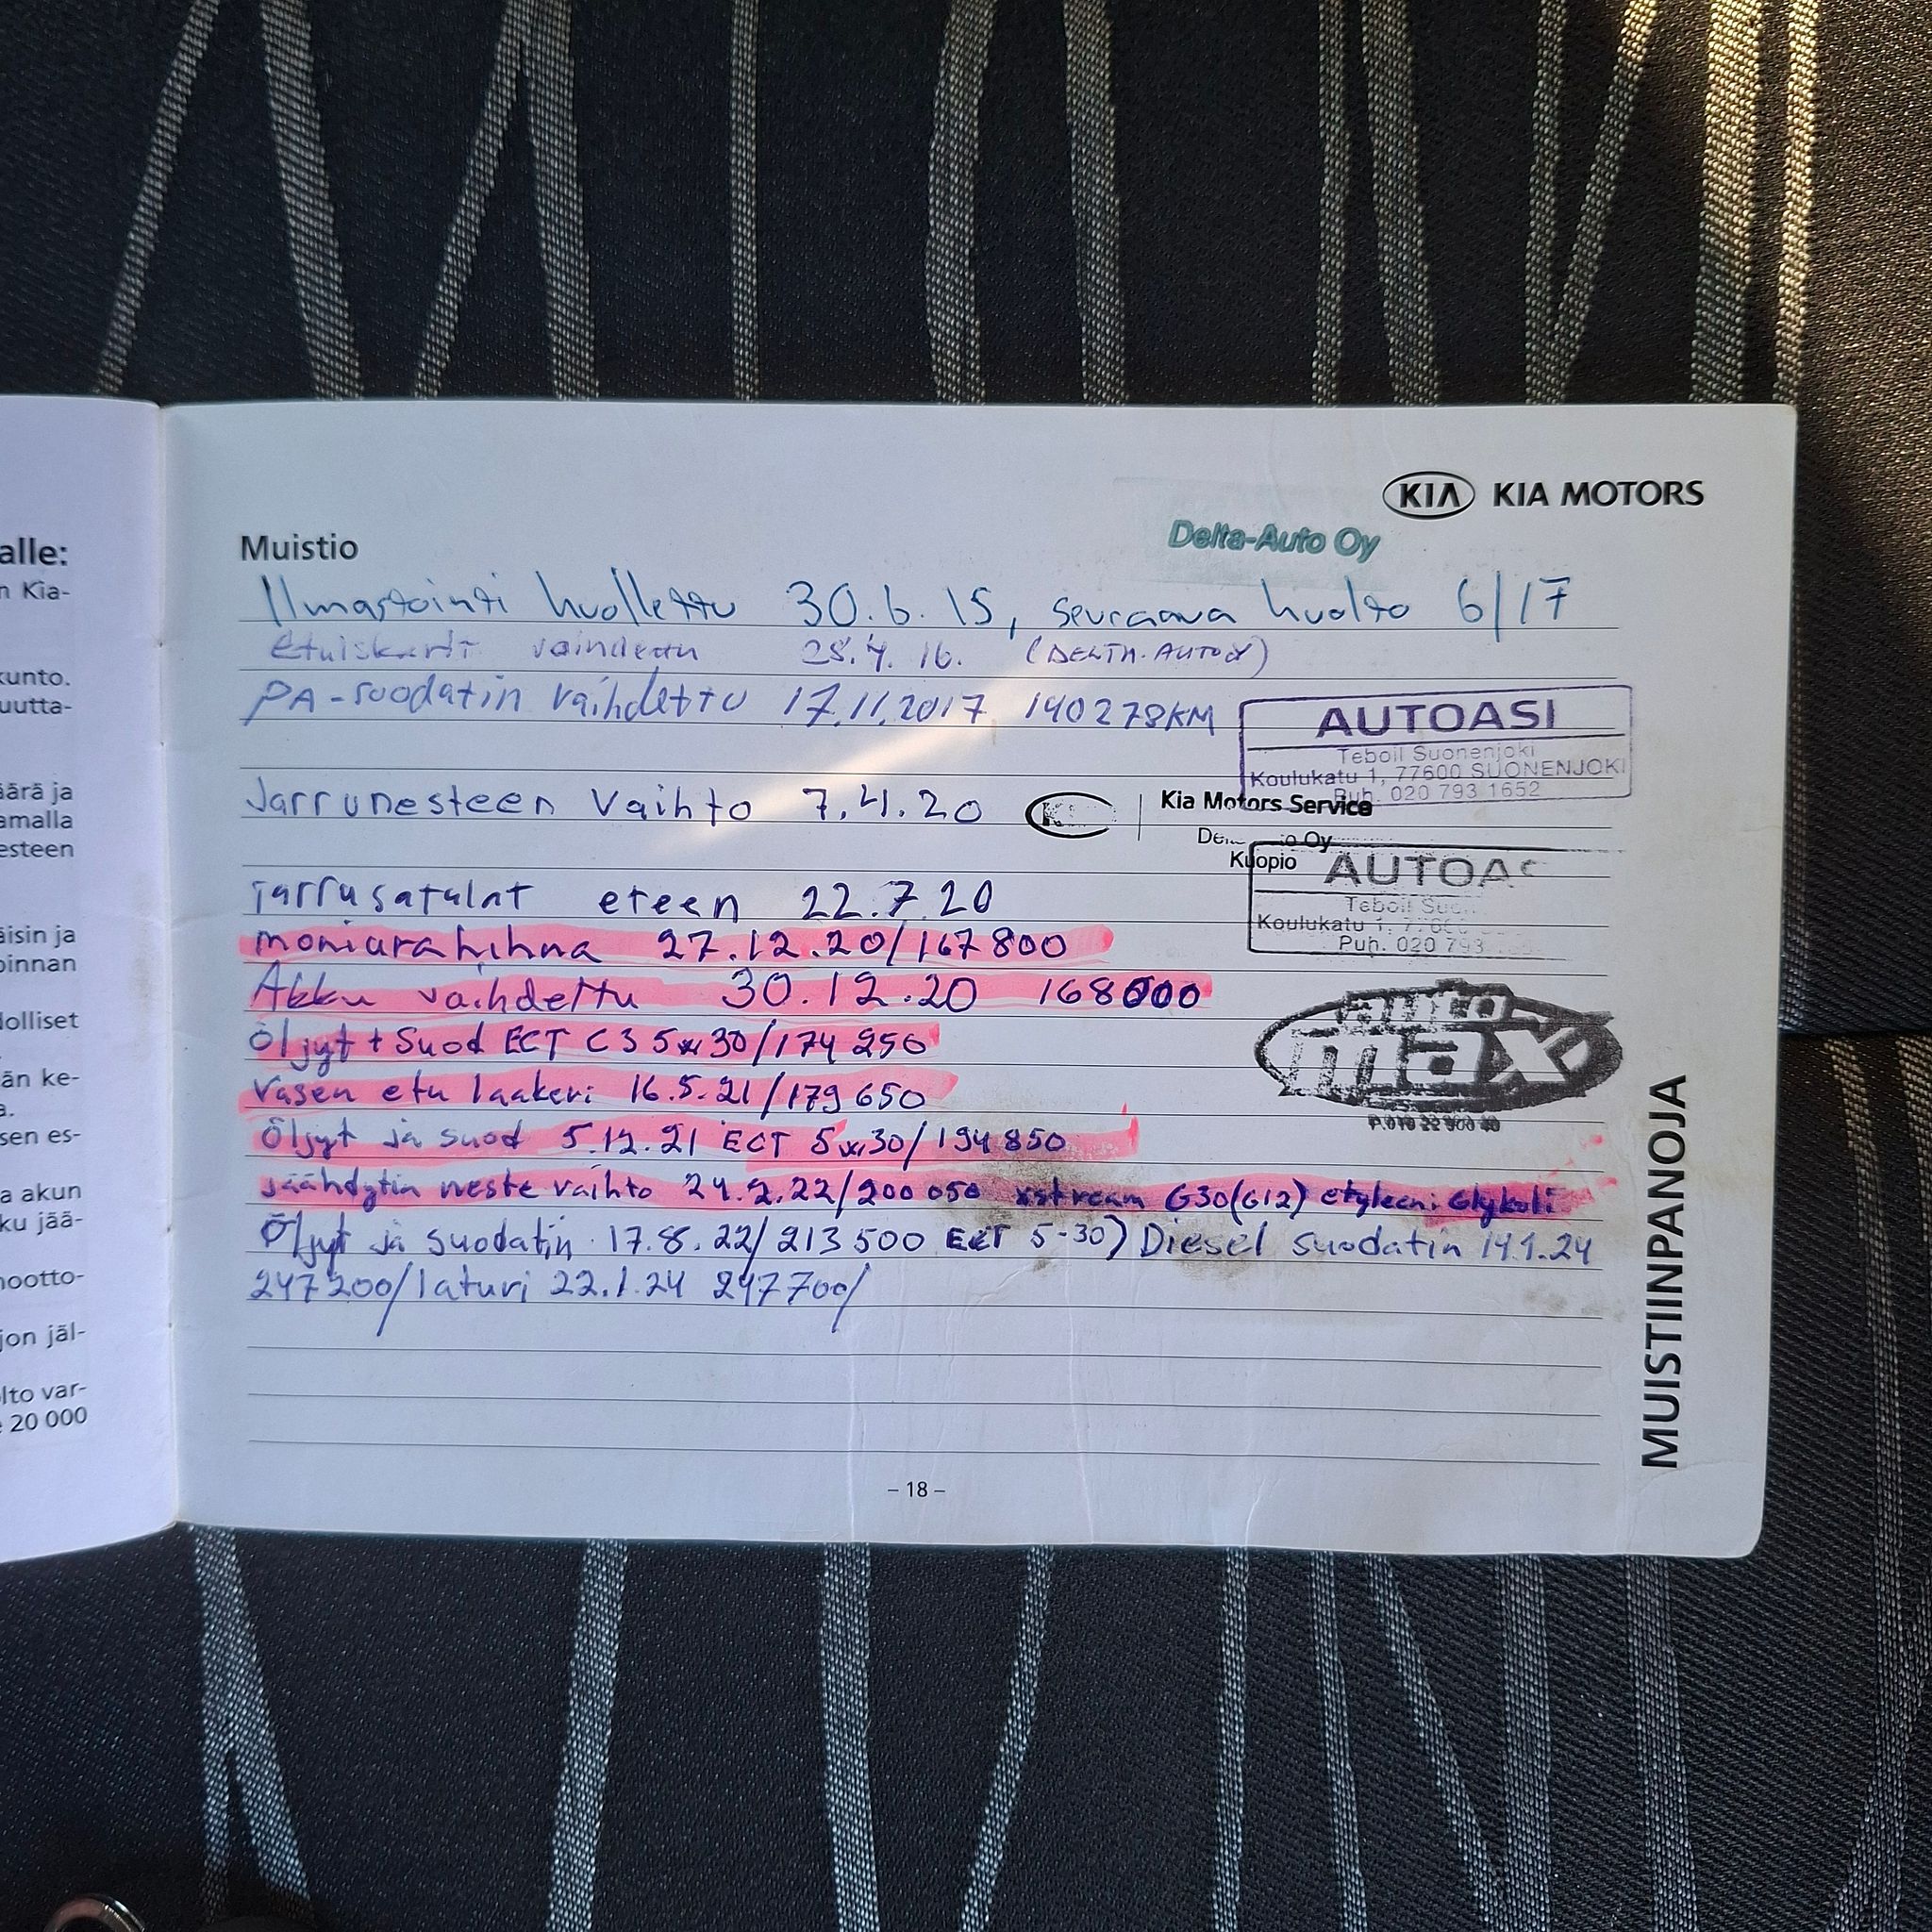 alle:
n Kia-
kunto.
uutta-
äärä ja
amalla
esteen
äisin ja
oinnan
dolliset
än ke-
a.
sen es-
a akun
ku jää-
nootto-
jon jäl-
lto var-
20 000
KIA KIA MOTORS
Delta-Auto Oy
Muistio
Ilmastointi huollettu 30.6.15, seuraava huolto 6/17
Etuiskarit vaihdettu 28.4.16. (DELTA-AUTO)
PA-suodatin vaihdettu 17.11.2017 140278KM
AUTOASI
Teboil Suonenjoki
Koulukatu 1, 77600 SUONENJOKI
Puh. 020 793 1652
Jarrunesteen vaihto 7.4.20
Kia Motors Service
Oy
Kuopio
AUTOAS
Teboil Suo
Koulukatu 1, 7760
Puh. 020 793
jarrusatulat eteen 22.7.20
moniurahihna 27.12.20/167800
Akku vaihdettu 30.12.20 168000
auto
max
Öljyt + Suod ECT C3 5w30/174 250
Vasen etu laakeri 16.5.21/179 650
Öljyt ja suod 5.12.21 ECT 5w30/194 850
jäähdytin neste vaihto 24.2.22/200 050 xstream G30(G12) etyleeni Glykoli
Öljyt ja suodatin 17.8.22/213 500 ECT 5-30) Diesel suodatin 14.1.24
247200/laturi 22.1.24 247700/
MUISTIINPANOJA
– 18 –